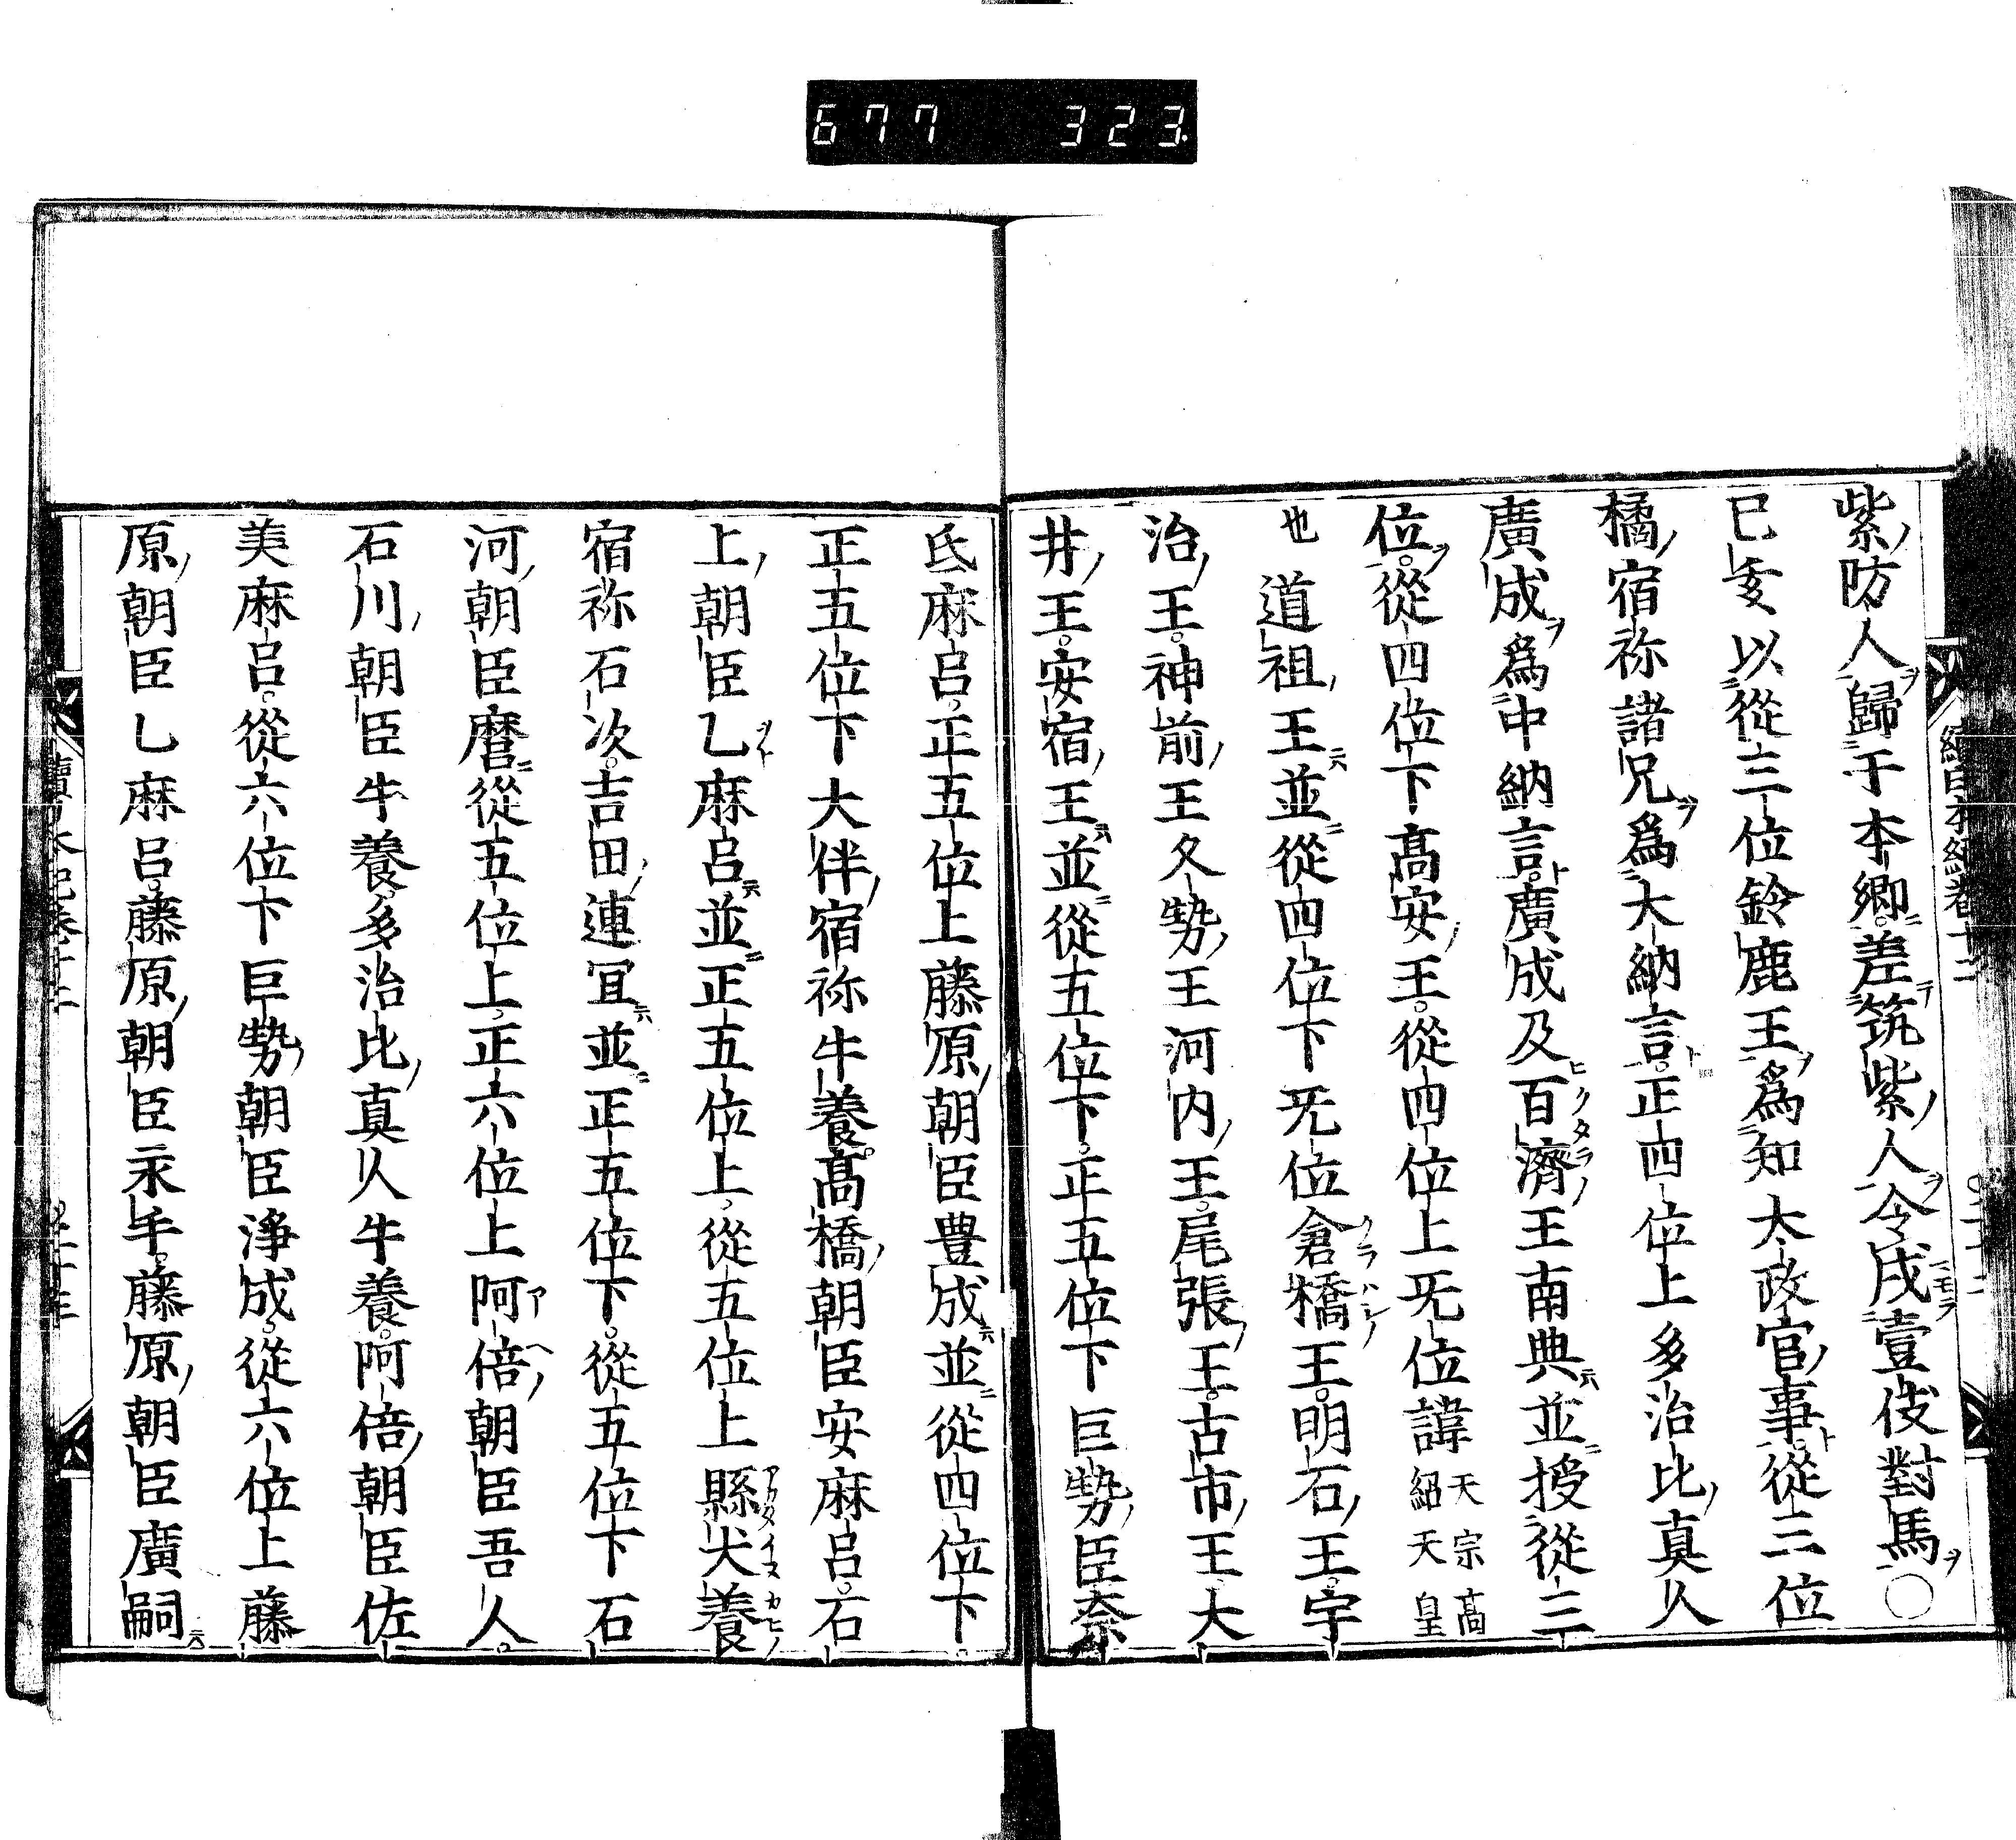 677 323
紫防人歸于本郷差筑紫人令戍壹伎對馬○
巳亥以從三位鈴鹿王爲知太政官事從三位
橘宿祢諸兄爲大納言正四位上多治比真人
廣成爲中納言廣成及百濟王南典並授從三
位從四位下髙安王從四位上旡位諱天宗髙紹天皇
也道祖王並從四位下旡位倉橋王明石王宇
治王神前王久勢王河内王尾張王古市王大
井王安宿王並從五位下正五位下巨勢臣奈
氐麻呂正五位上藤原朝臣豊成並從四位下
正五位下大伴宿祢牛養髙橋朝臣安麻呂石
上朝臣乙麻呂並正五位上從五位上縣犬養
宿祢石次吉田連冝並正五位下從五位下石
河朝臣麿從五位上正六位上阿倍朝臣吾人
石川朝臣牛養多治比真人牛養阿倍朝臣佐
美麻呂從六位下巨勢朝臣浄成從六位上藤
原朝臣乙麻呂藤原朝臣永手藤原朝臣廣嗣